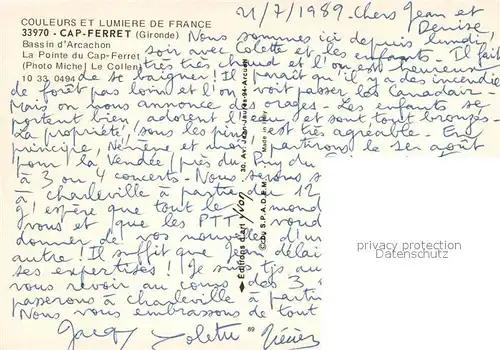 COULEURS ET LUMIERE DE FRANCE
33970 - CAP-FERRET (Gironde)
Bassin d'Arcachon
La Pointe du Cap-Ferret
(Photo Michel Le Collen)
10 33 0494
21/7/1989. Chers Jean et
Denise,
Nous sommes ici depuis lundi
soir avec Colette et les enfants. Il fait
très très chaud et l'on est heureux
de se baigner! Il paraît qu'il y a des incendies
de forêt pas loin et l'on voit passer les Canadair.
Mais on nous annonce des orages. Les enfants se
portent bien adorent l'eau et sont tout bronzés.
La propriété, sous les pins, est très agréable. En
principe, et moi partirons le 1er août
pour la Vendée (près du Puy du
à 3 ou 4 concerts. Nous serons
à Charleville à partir du 12
J'espère que tout le mond
vous et que les PTT voud
donner de vos nouvelles d'un
autre! Il suffit que Jean délai
ses expertises! Je suis tjs au
vous revoir au cours des 3
passerons à Charleville à partir
Nous vous embrassons de tout
Jacq Colette
30, Av. Jean-Jaurès-94-Arcueil
Made in
Editions d'art yvon
© by S.P.A.D.E.M.
89
privacy protection
Datenschutz